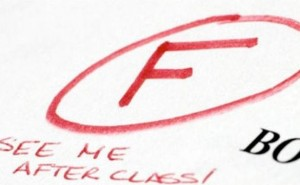 F
SEE ME
AFTER CLASS!
BO